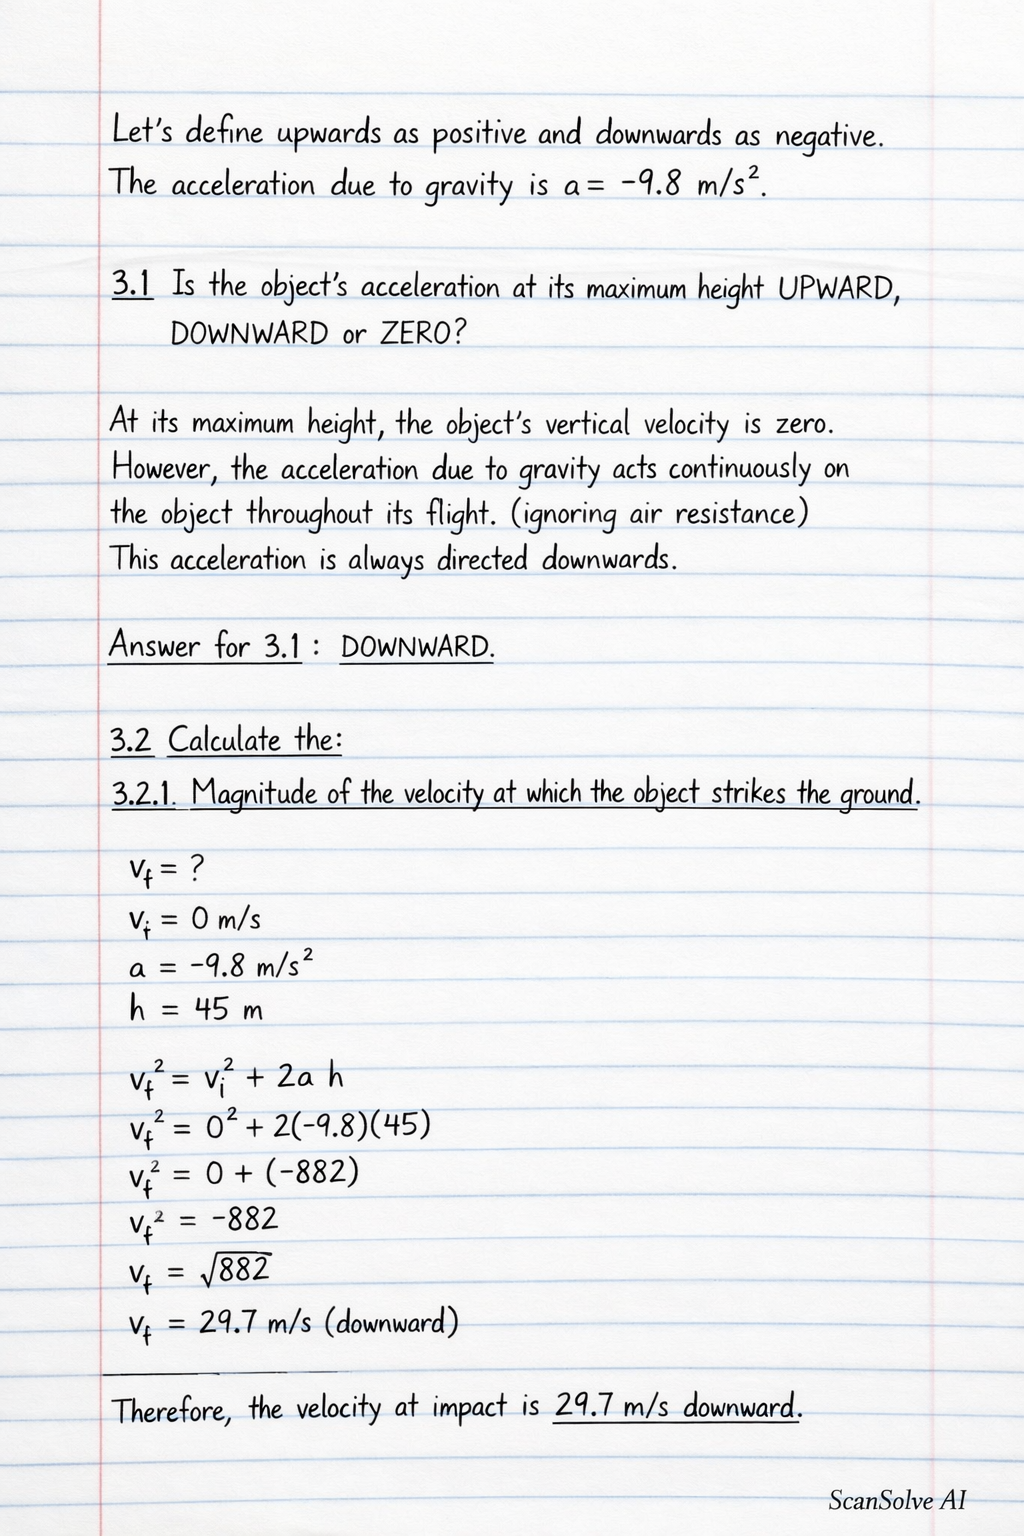 Let's define upwards as positive and downwards as negative.
The acceleration due to gravity is a = -9.8 m/s².
3.1 Is the object's acceleration at its maximum height UPWARD,
DOWNWARD or ZERO?
At its maximum height, the object's vertical velocity is zero.
However, the acceleration due to gravity acts continuously on
the object throughout its flight. (ignoring air resistance)
This acceleration is always directed downwards.
Answer for 3.1 : DOWNWARD.
3.2 Calculate the:
3.2.1. Magnitude of the velocity at which the object strikes the ground.
v_f = ?
v_i = 0 m/s
a = -9.8 m/s²
h = 45 m
v_f² = v_i² + 2a h
v_f² = 0² + 2(-9.8)(45)
v_f² = 0 + (-882)
v_f² = -882
v_f = √882
v_f = 29.7 m/s (downward)
Therefore, the velocity at impact is 29.7 m/s downward.
ScanSolve AI